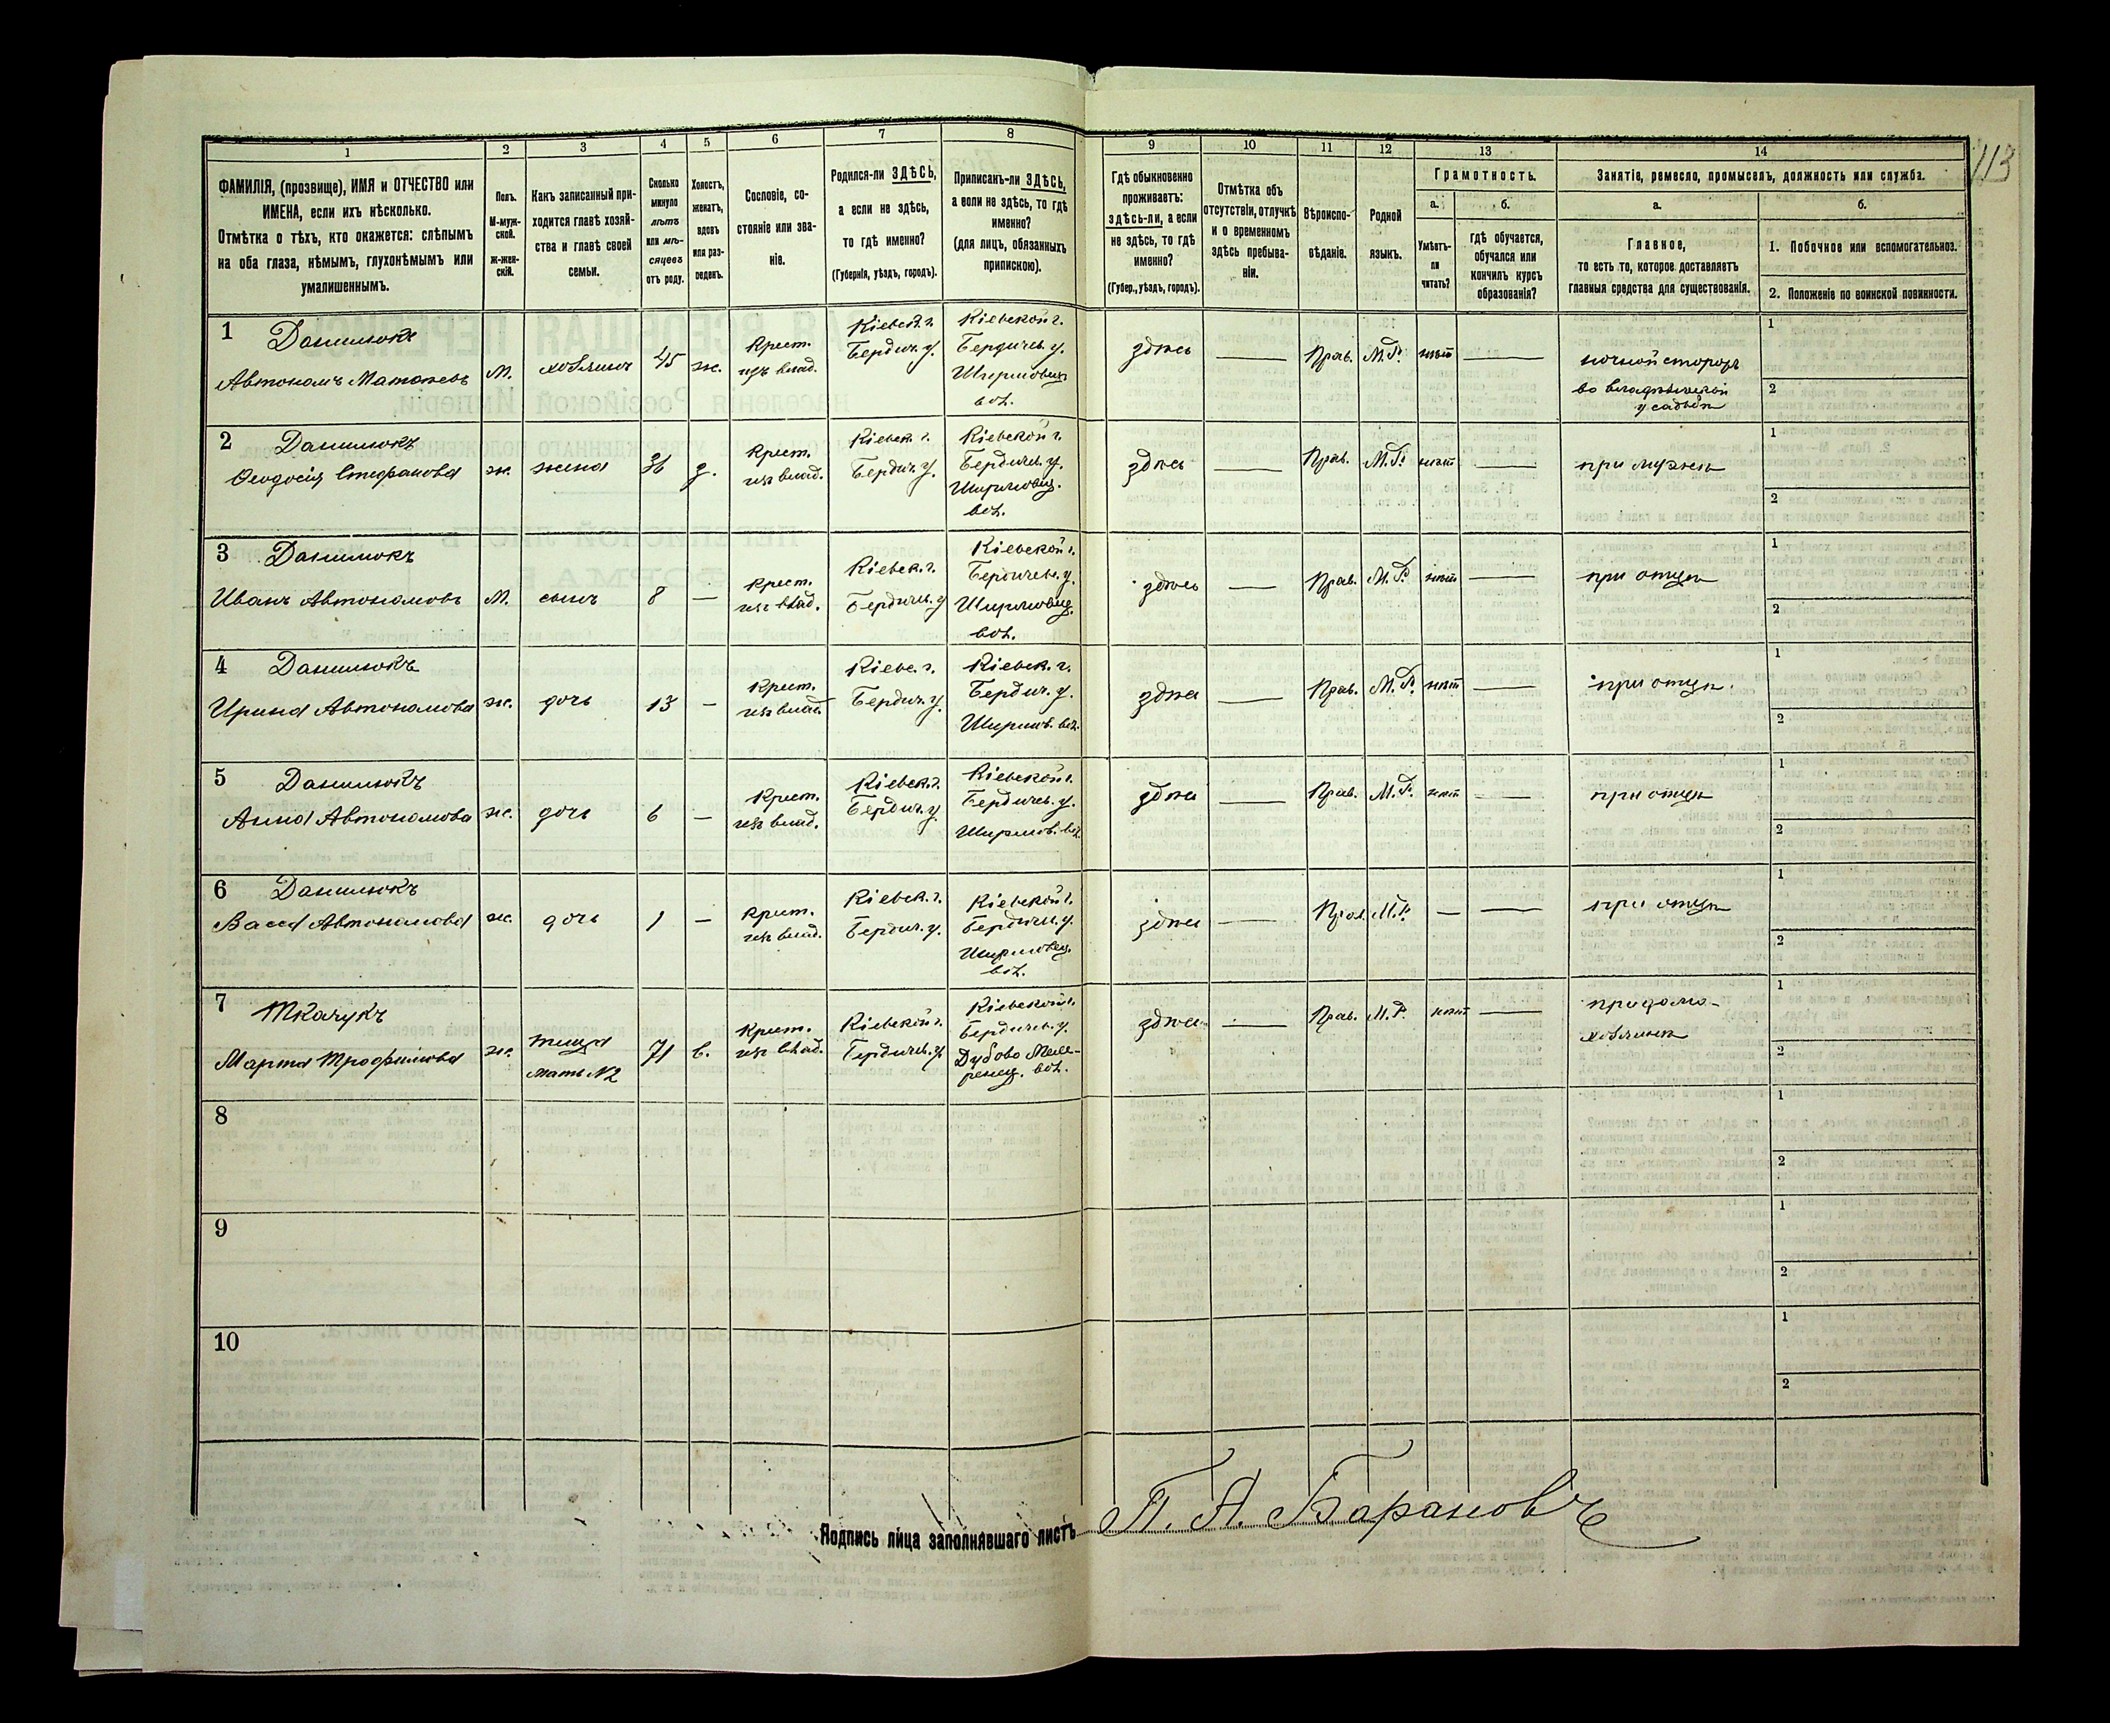 113
1 2 3 4 5 6 7 8 9 10 11 12 13 14
ФАМИЛІЯ, (прозвище), ИМЯ и ОТЧЕСТВО или
ИМЕНА, если ихъ нѣсколько.
Отмѣтка о тѣхъ, кто окажется: слѣпымъ
на оба глаза, нѣмымъ, глухонѣмымъ или
умалишеннымъ.
Полъ.
М-муж-
ской.
ж-жен-
скій.
Какъ записанный при-
ходится главѣ хозяй-
ства и главѣ своей
семьи.
Сколько
минуло
лѣтъ
или мѣ-
сяцевъ
отъ роду.
Холостъ,
женатъ,
вдовъ
или раз-
веденъ.
Сословіе, со-
стояніе или зва-
ніе.
Родился-ли ЗДѢСЬ,
а если не здѣсь,
то гдѣ именно?
(Губернія, уѣздъ, городъ).
Приписанъ-ли ЗДѢСЬ,
а если не здѣсь, то гдѣ
именно?
(для лицъ, обязанныхъ
припискою).
Гдѣ обыкновенно
проживаетъ:
здѣсь-ли, а если
не здѣсь, то гдѣ
именно?
(Губер., уѣздъ, городъ).
Отмѣтка объ
отсутствіи, отлучкѣ
и о временномъ
здѣсь пребыва-
ніи.
Вѣроиспо-
вѣданіе.
Родной
языкъ.
Грамотность.
а.
Умѣетъ-
ли
читать?
б.
гдѣ обучается,
обучался или
кончилъ курсъ
образованія?
Занятіе, ремесло, промыселъ, должность или служба.
а.
Главное,
то есть то, которое доставляетъ
главныя средства для существованія.
б.
1. Побочное или вспомогательное.
2. Положеніе по воинской повинности.
1 Данилюкъ
Автономъ Матвѣевъ
М.
хозяинъ
45
ж.
Крест.
изъ влад.
Кіевск. г.
Бердич. у.
Кіевской г.
Бердичев. у.
Ширмовец.
вол.
здѣсь
—
Прав.
М.Р.
нѣтъ
—
ночной сторожъ
во владѣльческой
усадьбѣ
1
2
2 Данилюкъ
Ѳеодосія Стефанова
ж.
жена
36
з.
Крест.
изъ влад.
Кіевск. г.
Бердич. у.
Кіевской г.
Бердичев. у.
Ширмовец.
вол.
здѣсь
—
Прав.
М.Р.
нѣтъ
—
при мужѣ
1
2
3 Данилюкъ
Иванъ Автономовъ
М.
сынъ
8
—
Крест.
изъ влад.
Кіевск. г.
Бердичев. у
Кіевской г.
Бердичев. у.
Ширмовец.
вол.
здѣсь
—
Прав.
М.Р.
нѣтъ
—
при отцѣ
1
2
4 Данилюкъ
Ирина Автономова
ж.
дочь
13
—
Крест.
изъ влад.
Кіевс. г.
Бердич. у.
Кіевск. г.
Бердич. у.
Ширмов. вол.
здѣсь
—
Прав.
М.Р.
нѣтъ
—
при отцѣ.
1
2
5 Данилюкъ
Анна Автономова
ж.
дочь
6
—
Крест.
изъ влад.
Кіевск. г.
Бердич. у.
Кіевской г.
Бердичев. у.
Ширмов. вол.
здѣсь
—
Прав.
М.Р.
нѣтъ
—
при отцѣ
1
2
6 Данилюкъ
Васса Автономова
ж.
дочь
1
—
Крест.
изъ влад.
Кіевск. г.
Бердич. у.
Кіевской г.
Бердичев. у.
Ширмовец.
вол.
здѣсь
—
Прав.
М.Р.
—
—
при отцѣ
1
2
7 Ткачукъ
Марта Трофимова
ж.
теща
мать №2
71
в.
Крест.
изъ влад.
Кіевской г.
Бердичев. у.
Кіевской г.
Бердичев. у.
Дубово Меле-
ренец. вол.
здѣсь
—
Прав.
М.Р.
нѣтъ
—
при домо-
хозяинѣ
1
2
8
1
2
9
1
2
10
1
2
Подпись лица заполнявшаго листъ П. А. Барановъ